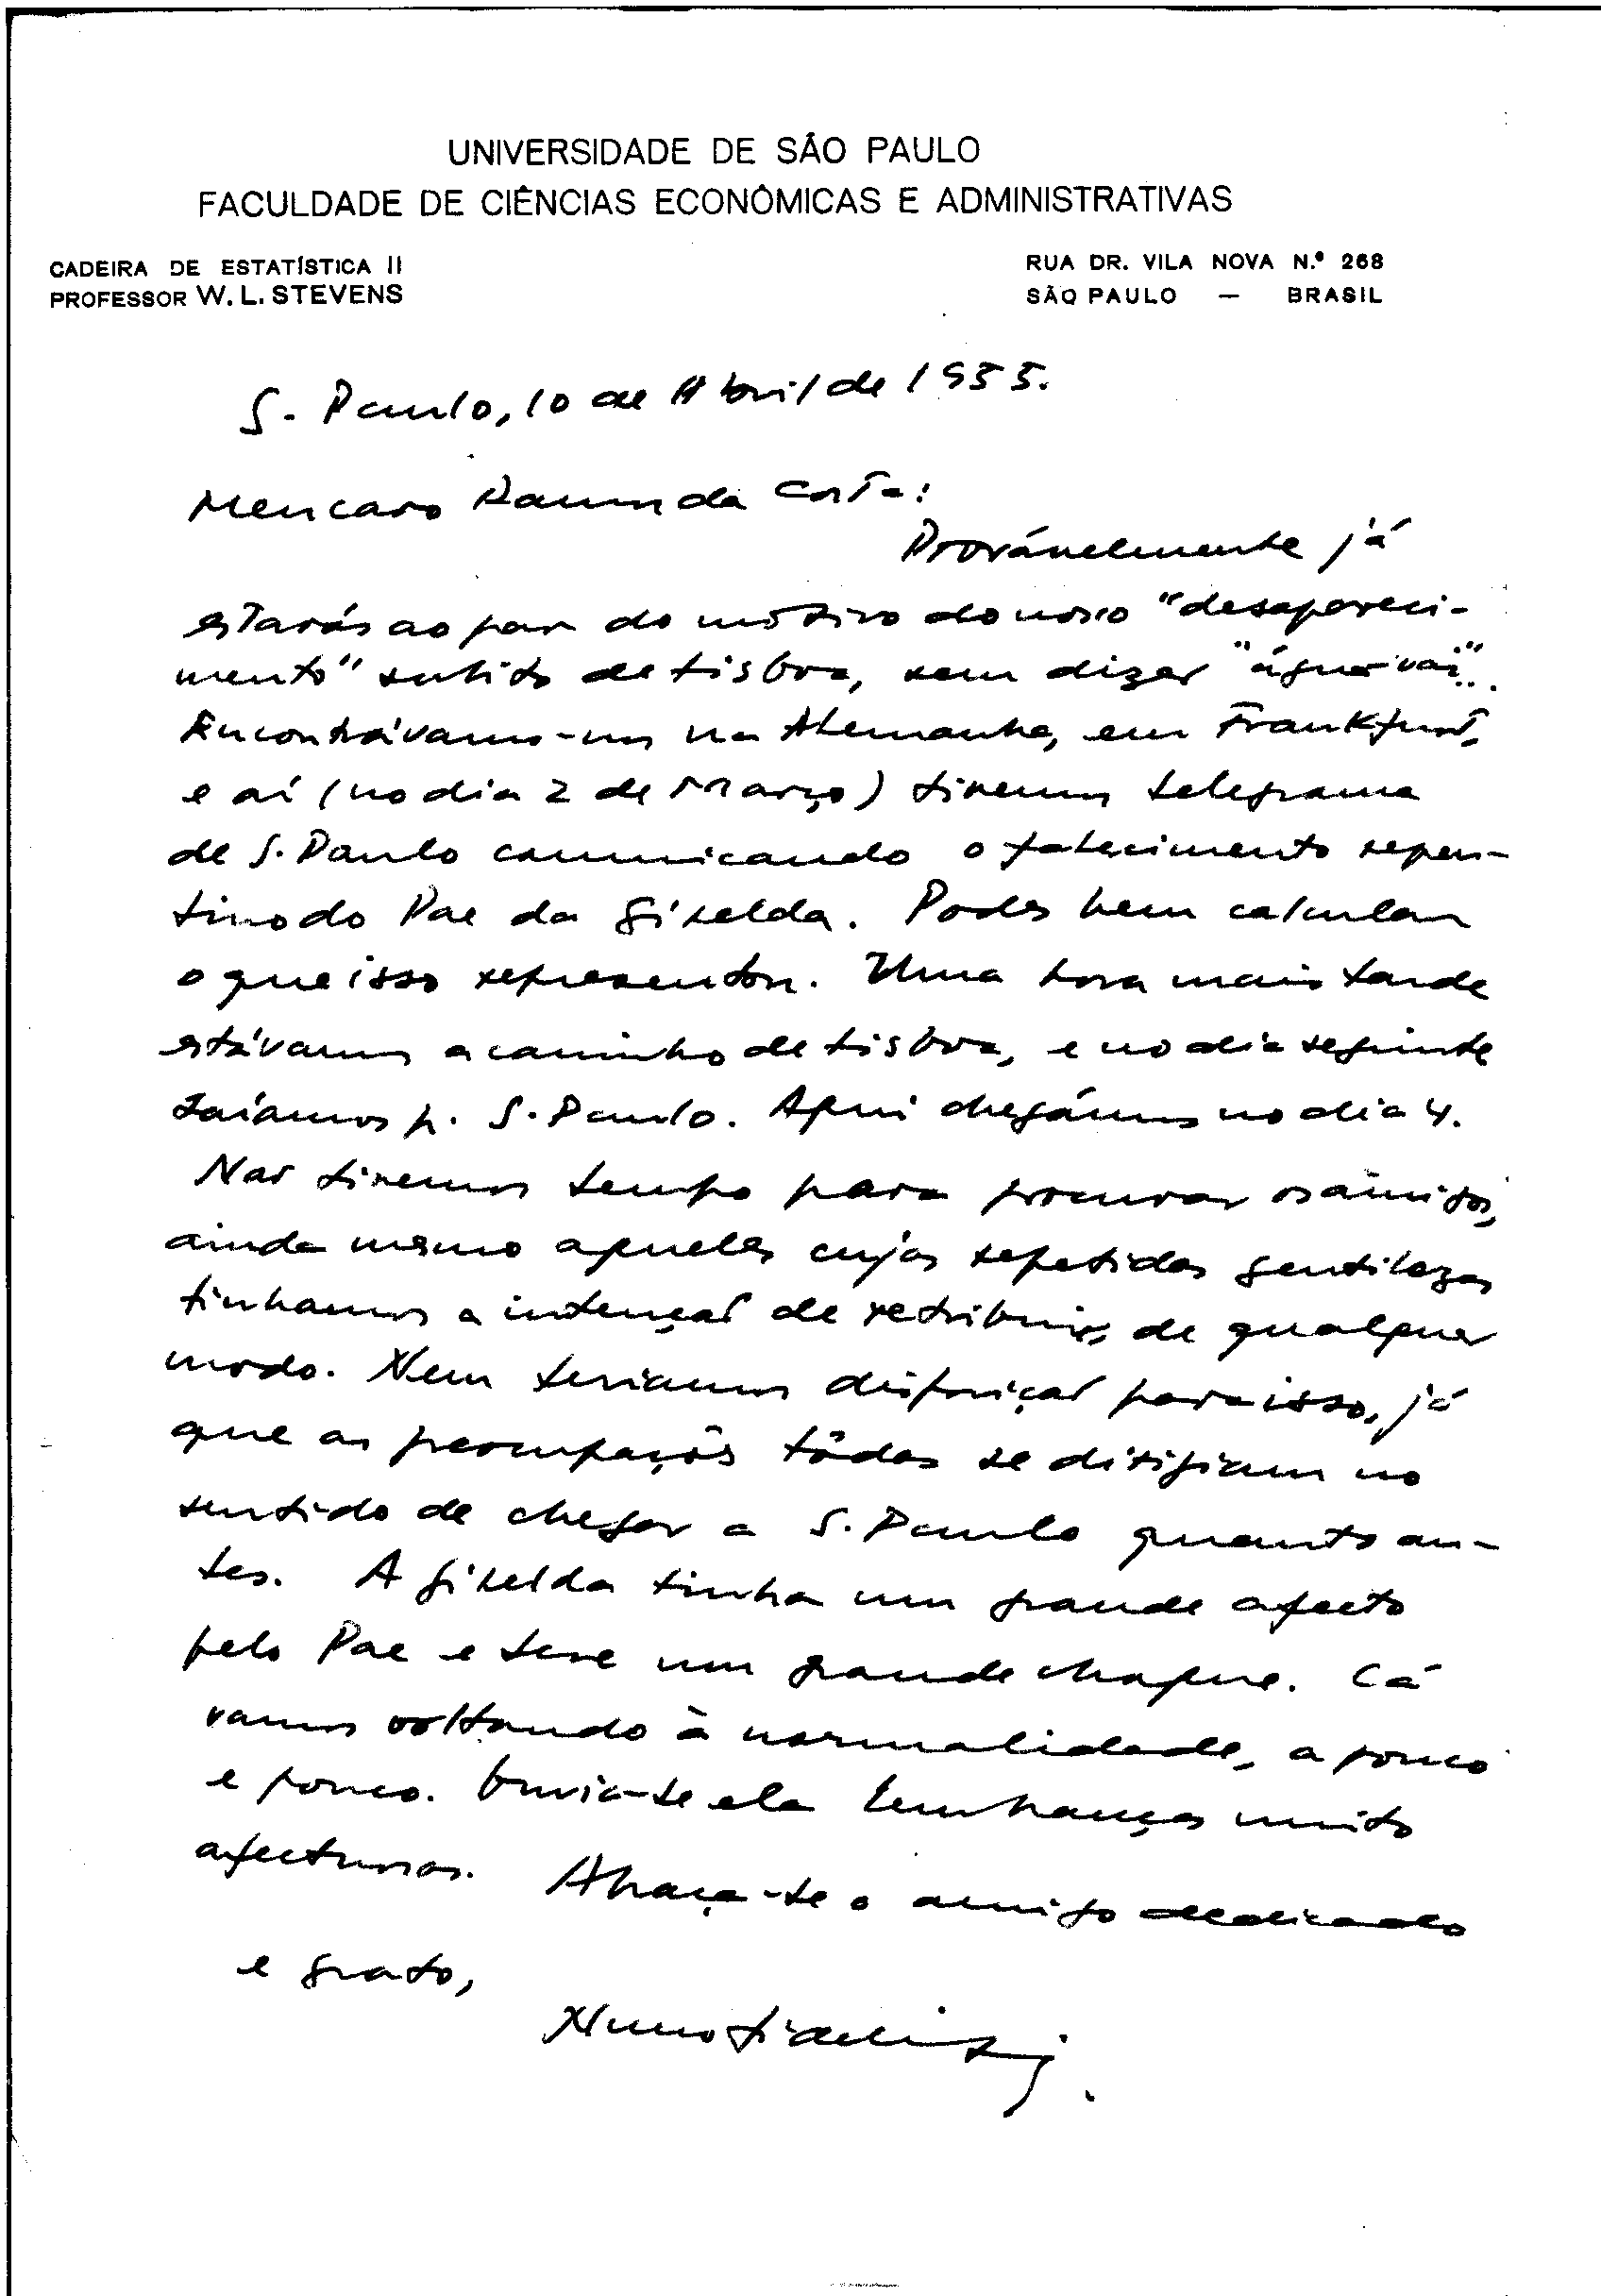 UNIVERSIDADE DE SÃO PAULO
FACULDADE DE CIÊNCIAS ECONÔMICAS E ADMINISTRATIVAS
CADEIRA DE ESTATÍSTICA II
PROFESSOR W. L. STEVENS
RUA DR. VILA NOVA N.º 268
SÃO PAULO — BRASIL
S. Paulo, 10 de Abril de 1955.
Meu caro Ramos da Costa:
Provávelmente já
estarás ao par do motivo do nosso "desapareci-
mento" subito de Lisboa, sem dizer "água vai"...
Encontrávamo-nos na Alemanha, em Frankfurt,
e aí (no dia 2 de Março) tivemos telegrama
de S. Paulo comunicando o falecimento repen-
tino do Pae da Giselda. Podes bem calcular
o que isso representou. Uma hora mais tarde
estávamos a caminho de Lisboa, e no dia seguinte
saíamos p. S. Paulo. Aqui chegámos no dia 4.
Não tivemos tempo para procurar os amigos,
ainda mesmo aqueles cujas repetidas gentilezas
tinhamos a intenção de retribuir, de qualquer
modo. Nem teriamos disposição para isso, já
que as preocupações tôdas se dirigiam no
sentido de chegar a S. Paulo quanto an-
tes. A Giselda tinha um grande afecto
pelo Pae e teve um grande choque. Cá
vamos voltando à normalidade, a pouco
e pouco. Envia-te ela lembranças muito
afectuosas. Abraça-te o amigo dedicado
e grato,
Nuno Fidelino